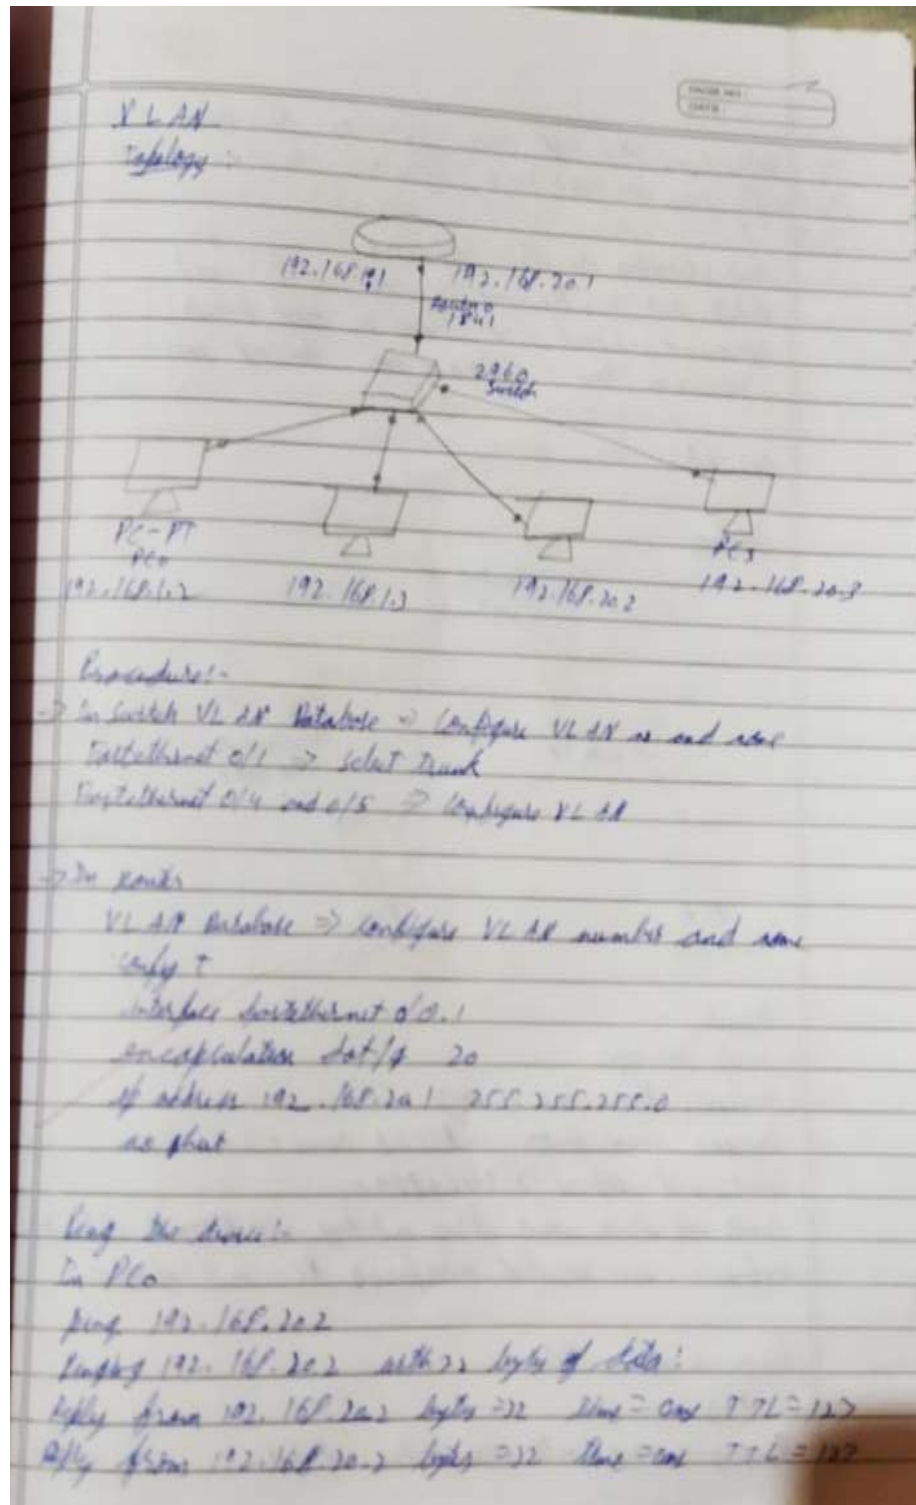 PAGE NO :
DATE :
VLAN
Topology :
192.168.1.1 192.168.20.1
Router 0
1841
2960
Switch
PC-PT
PC0
PC3
192.168.1.2 192.168.1.3 192.168.20.2 192.168.20.3
Procedure:-
→ In Switch VLAN Database ⇒ Configure VLAN no and name
Fastethernet 0/1 ⇒ select Trunk
Fastethernet 0/4 and 0/5 ⇒ Configure VLAN
→ In router
VLAN Database ⇒ configure VLAN number and name
config T
interface fastethernet 0/0.1
encapsulation dot1q 20
ip address 192.168.20.1 255.255.255.0
no shut
Ping the device:-
In PC0
ping 192.168.20.2
Pinging 192.168.20.2 with 32 bytes of data:
Reply from 192.168.20.2 bytes =32 time = 0ms TTL=127
Reply from 192.168.20.2 bytes =32 time =0ms TTL=127